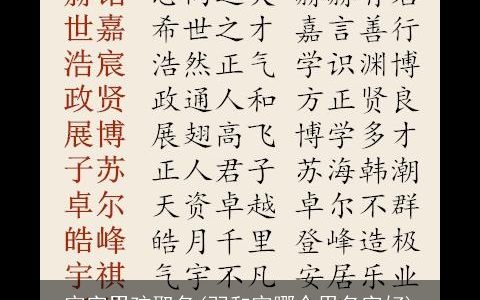 世嘉 希世之才 嘉言善行
浩宸 浩然正气 学识渊博
政贤 政通人和 方正贤良
展博 展翅高飞 博学多才
子苏 正人君子 苏海韩潮
卓尔 天资卓越 卓尔不群
皓峰 皓月千里 登峰造极
宇祺 气宇不凡 安居乐业